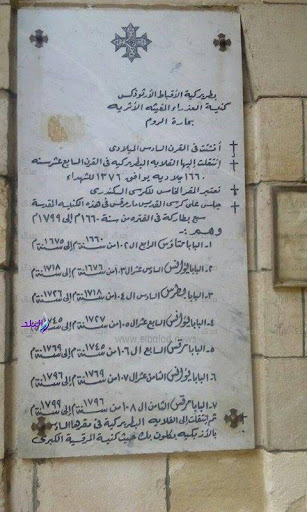 بطريركية الأقباط الأرثوذكس
كنيسة العذراء المغيثة الأثرية
بحارة الروم
أنشئت في القرن السادس الميلادى
إنتقلت إليها القلاية البطريركية فى القرن السابع عشر سنه
١٦٦٠ ميلادية يوافق ١٣٧٦ للشهداء
تعتبر المقر الخامس للكرسى السكندرى
جلس على كرسى القديس مارمرقس فى هذه الكنيسة المقدسة
سبع بطاركة فى الفترة من سنة ١٦٦٠م إلى ١٧٩٩م
وهم :-
١- البابا متاؤس الرابع ال١٠٢ من سنة ١٦٦٠م إلى سنة ١٦٧٥م
٢- البابا يوأنس السادس عشر ال١٠٣ من سنة ١٦٧٦م إلى سنة ١٧١٨م
٣- البابا بطرس السادس ال١٠٤ من سنة ١٧١٨م إلى سنة ١٧٢٦م
٤- البابا يوأنس السابع عشر ال١٠٥ من سنة ١٧٢٧م إلى سنة ١٧٤٥م
٥- البابا مرقس السابع ال١٠٦ من سنة ١٧٤٥م إلى سنة ١٧٦٩م
٦- البابا يوأنس الثامن عشر ال١٠٧ من سنة ١٧٦٩م إلى سنة ١٧٩٦م
٧- البابا مرقس الثامن ال١٠٨ من سنة ١٧٩٦م إلى سنة ١٧٩٩م
ثم إنتقلت إلى القلاية البطريركية فى مقرها السادس
بالأزبكية بكلوت بك حيث كنيسة المرقسية الكبرى